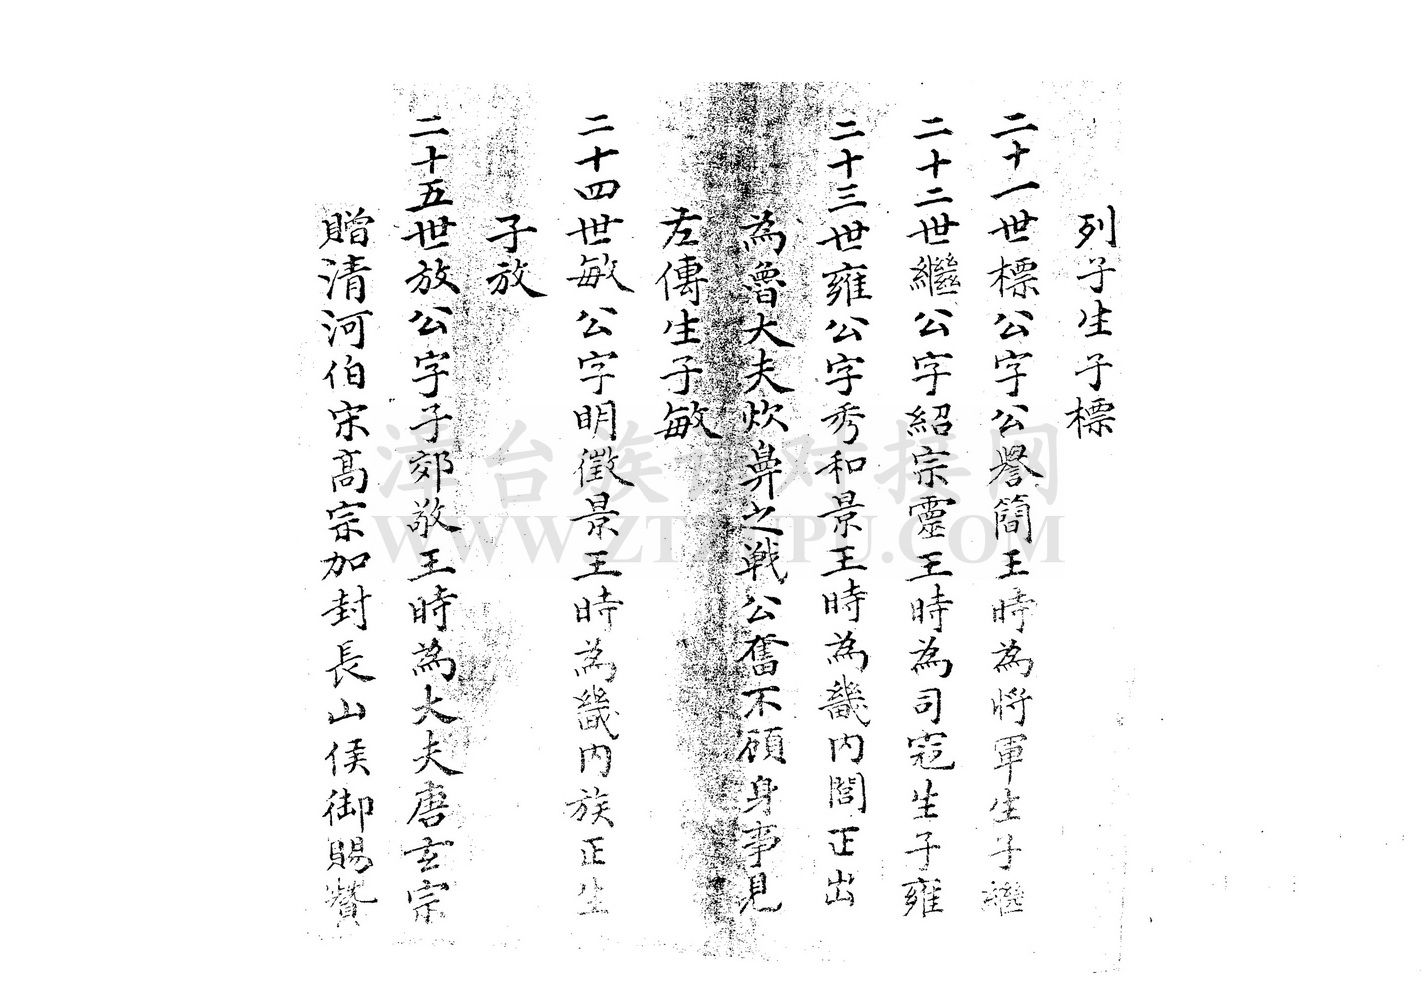 列子生子標
二十一世標公字公譽簡王時為將軍生子繼
二十二世繼公字紹宗靈王時為司寇生子雍
二十三世雍公字秀和景王時為畿内閭正出
為魯大夫炊鼻之戰公奮不顧身事見
左傳生子敏
二十四世敏公字明徵景王時為畿内族正生
子放
二十五世放公字子郊敬王時為大夫唐玄宗
贈清河伯宋高宗加封長山侯御賜贊
漳台族谱对接网
WWW.ZTZUPU.COM